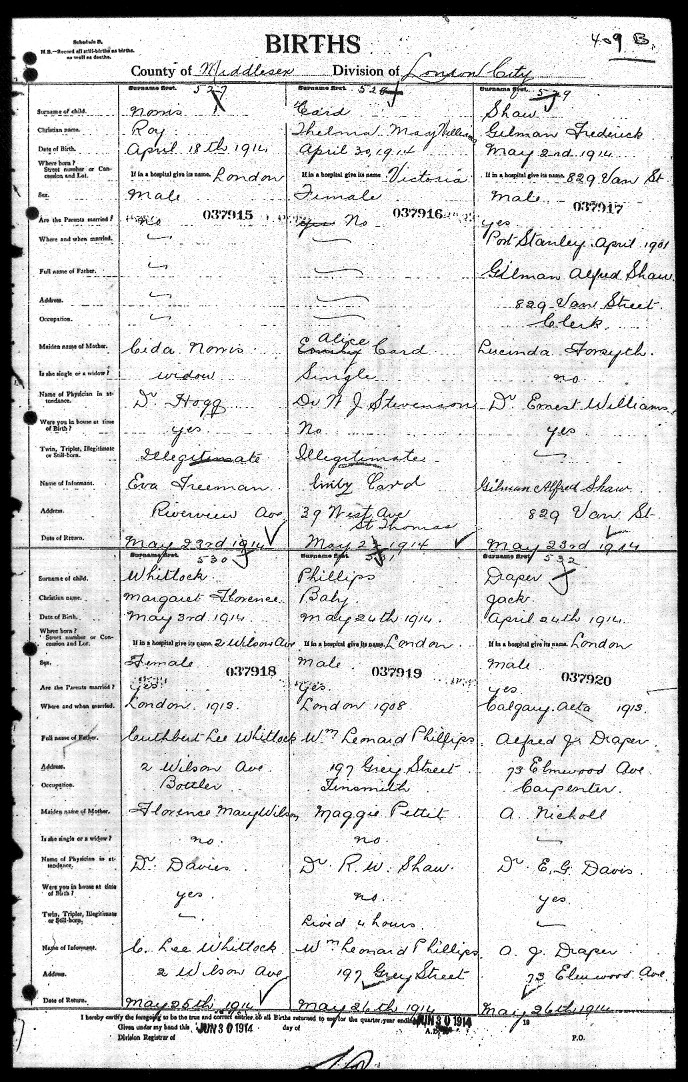 Schedule B.
N.B.—Record all still-births as births.
as well as deaths.
BIRTHS
409 B.
County of Middlesex Division of London City
Surname first. 527 Surname first. 528 Surname first. 529
Surname of child. Norris Card Shaw
Christian name. Roy Thelma May Gilman Frederick
Date of Birth. April 18th 1914 April 30, 1914 May 2nd 1914
Where born?
Street number or Con-
cession and Lot. If in a hospital give its name. London If in a hospital give its name. Victoria If in a hospital give its name. 829 Van St
Sex. Male Female Male
037915 037916 037917
Are the Parents married? No yes No yes
Where and when married. Port Stanley. April 1901
Full name of Father. Gilman Alfred Shaw
Address. 829 Van Street
Occupation. Clerk.
Maiden name of Mother. Cida Norris Emily Alice Card Lucinda Forsyth.
Is she single or a widow? widow Single no
Name of Physician in at-
tendance. Dr Hogg Dr N J Stevenson Dr Ernest Williams
Were you in house at time
of Birth? yes. No yes
Twin, Triplet, Illegitimate
or Still-born. Illegitimate Illegitimate
Name of Informant. Eva Freeman Emily Card Gilman Alfred Shaw
Address. Riverview Ave 39 West Ave St Thomas 829 Van St
Date of Return. May 23rd 1914 May 2 1914 May 23rd 1914
Surname first. 530 Surname first. 531 Surname first. 532
Surname of child. Whitlock Phillips Draper
Christian name. Margaret Florence. Baby Jack
Date of Birth. May 3rd 1914 May 24th 1914. April 24th 1914.
Where born?
Street number or Con-
cession and Lot. If in a hospital give its name. 2 Wilson Ave If in a hospital give its name. London If in a hospital give its name. London
Sex. Female Male Male
037918 037919 037920
Are the Parents married? Yes Yes. yes
Where and when married. London. 1913. London 1908 Calgary. Alta 1913.
Full name of Father. Cuthbert Lee Whitlock Wm Leonard Phillips. Alfred J. Draper.
Address. 2 Wilson Ave 197 Grey Street 73 Elmwood Ave.
Occupation. Bottler Tinsmith Carpenter.
Maiden name of Mother. Florence May Wilson Maggie Pettit A. Nicholl
Is she single or a widow? no. no.
Name of Physician in at-
tendance. Dr Davies Dr R. W. Shaw. Dr E. G. Davis
Were you in house at time
of Birth? yes. no. yes.
Twin, Triplet, Illegitimate
or Still-born. Lived 4 hours.
Name of Informant. C. Lee Whitlock Wm Leonard Phillips A. J. Draper
Address. 2 Wilson Ave 197 Grey Street 73 Elmwood Ave
Date of Return. May 25th 1914 May 26th 1914 May 26th 1914
I hereby certify the foregoing to be the true and correct entries of all Births returned to me for the quarter year ending JUN 30 1914 19
Given under my hand this JUN 30 1914 day of A.D. 19
Division Registrar of P.O.